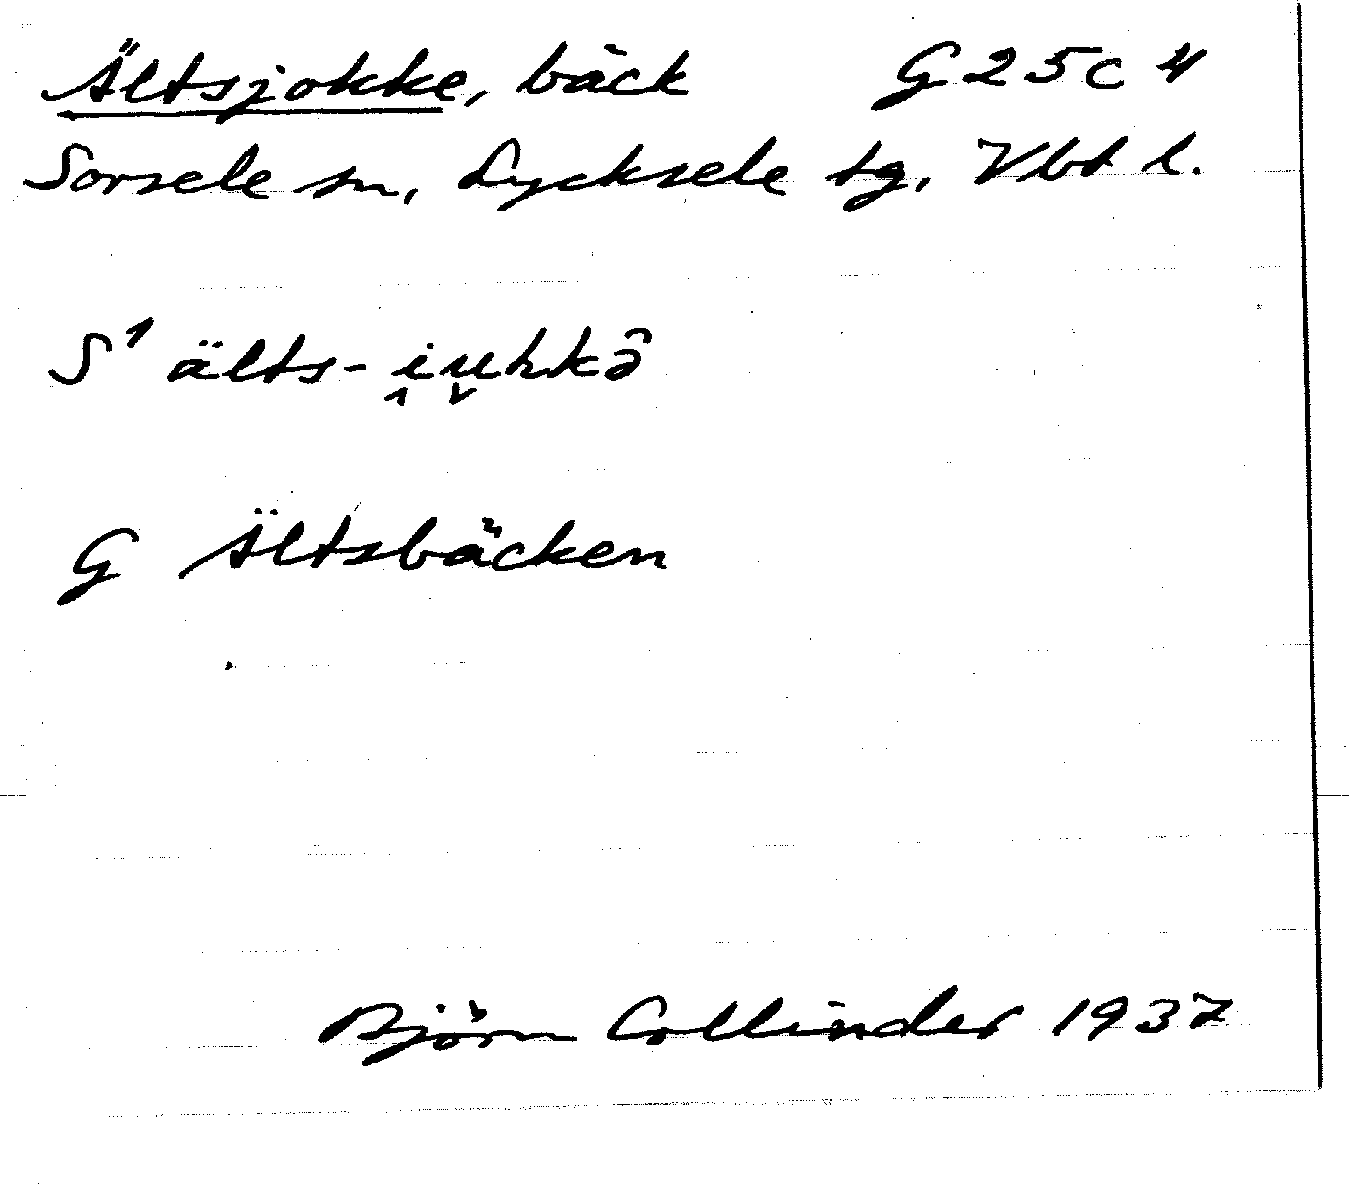 Ältsjokke, bäck G 25 c 4
Sorsele sn, Lycksele tg, Vbt l.
S¹ älts-i̭u̬hkâ
G Ältsbäcken
Björn Collinder 1937